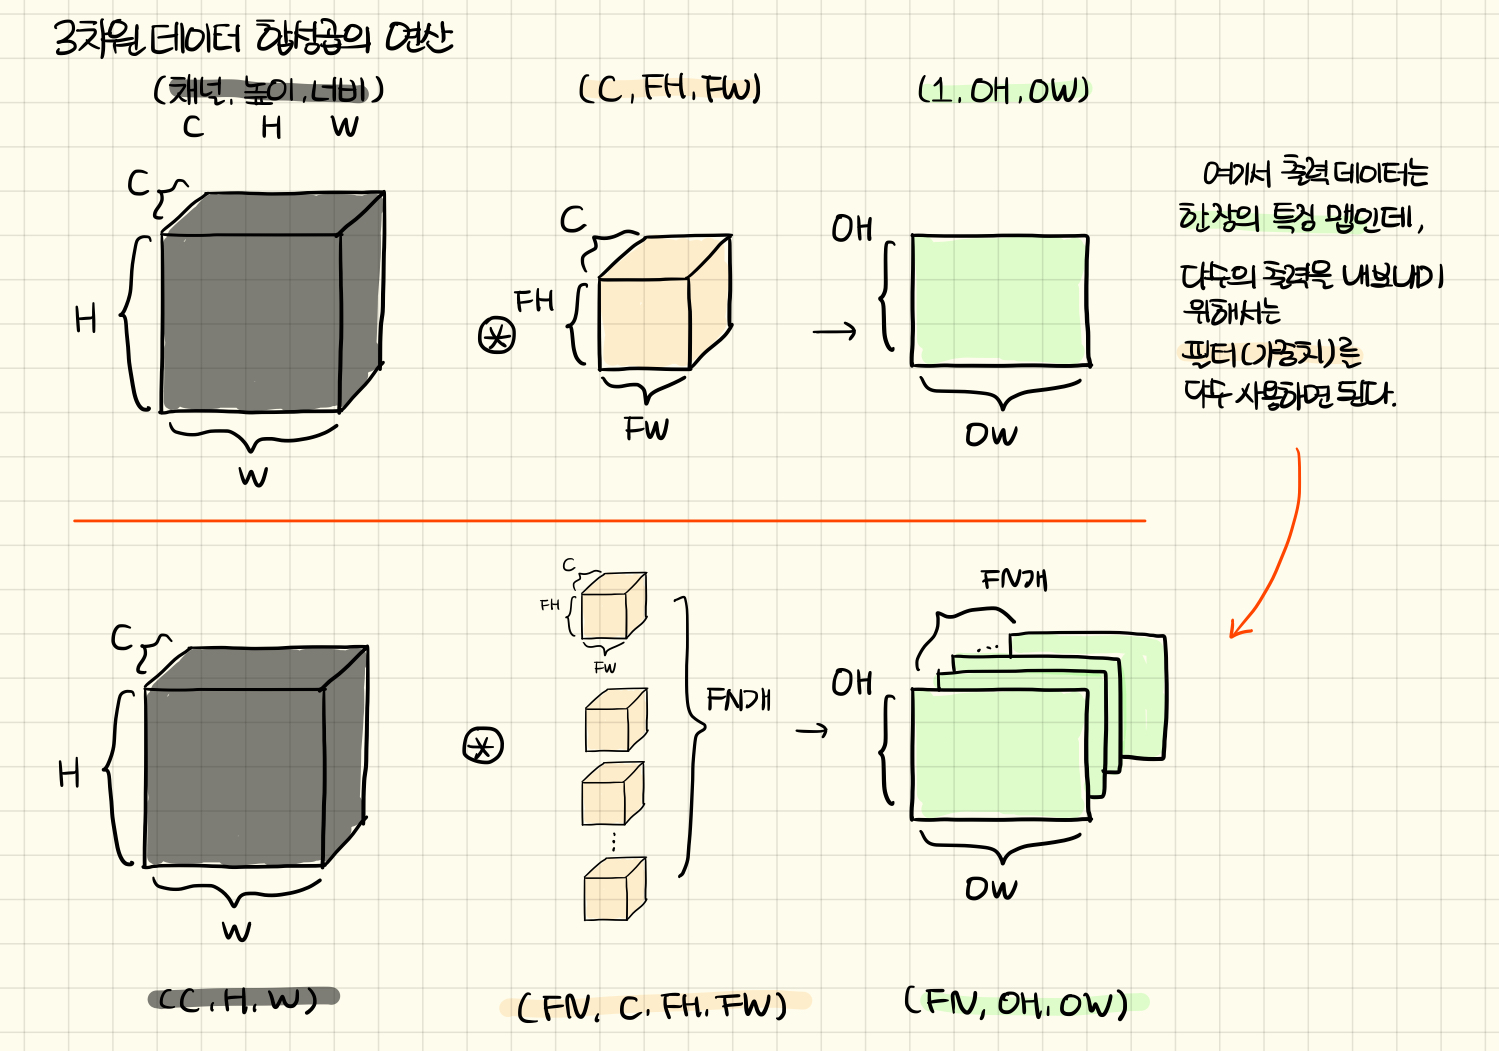 3차원 데이터 합성곱의 연산
(채널, 높이, 너비)
C H W
(C, FH, FW)
(1, OH, OW)
C
H
W
C
FH
FW
OH
OW
여기서 출력 데이터는
한 장의 특징 맵인데,
다수의 출력을 내보내기
위해서는
필터(가중치)를
다수 사용하면 된다.
C
H
W
C
FH
FW
FN개
FN개
OH
OW
(C, H, W)
(FN, C, FH, FW)
(FN, OH, OW)